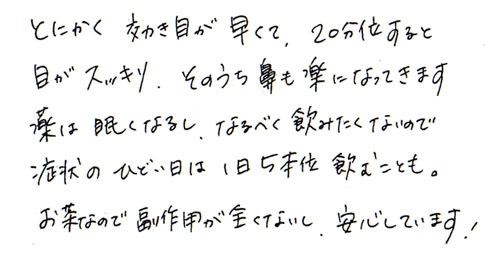 とにかく 効き目が 早くて、20分位すると
目が スッキリ、そのうち 鼻も 楽になってきます
薬は 眠くなるし、なるべく 飲みたくないので
症状の ひどい日は 1日5本位 飲むことも。
お茶なので 副作用が全くないし、安心しています!